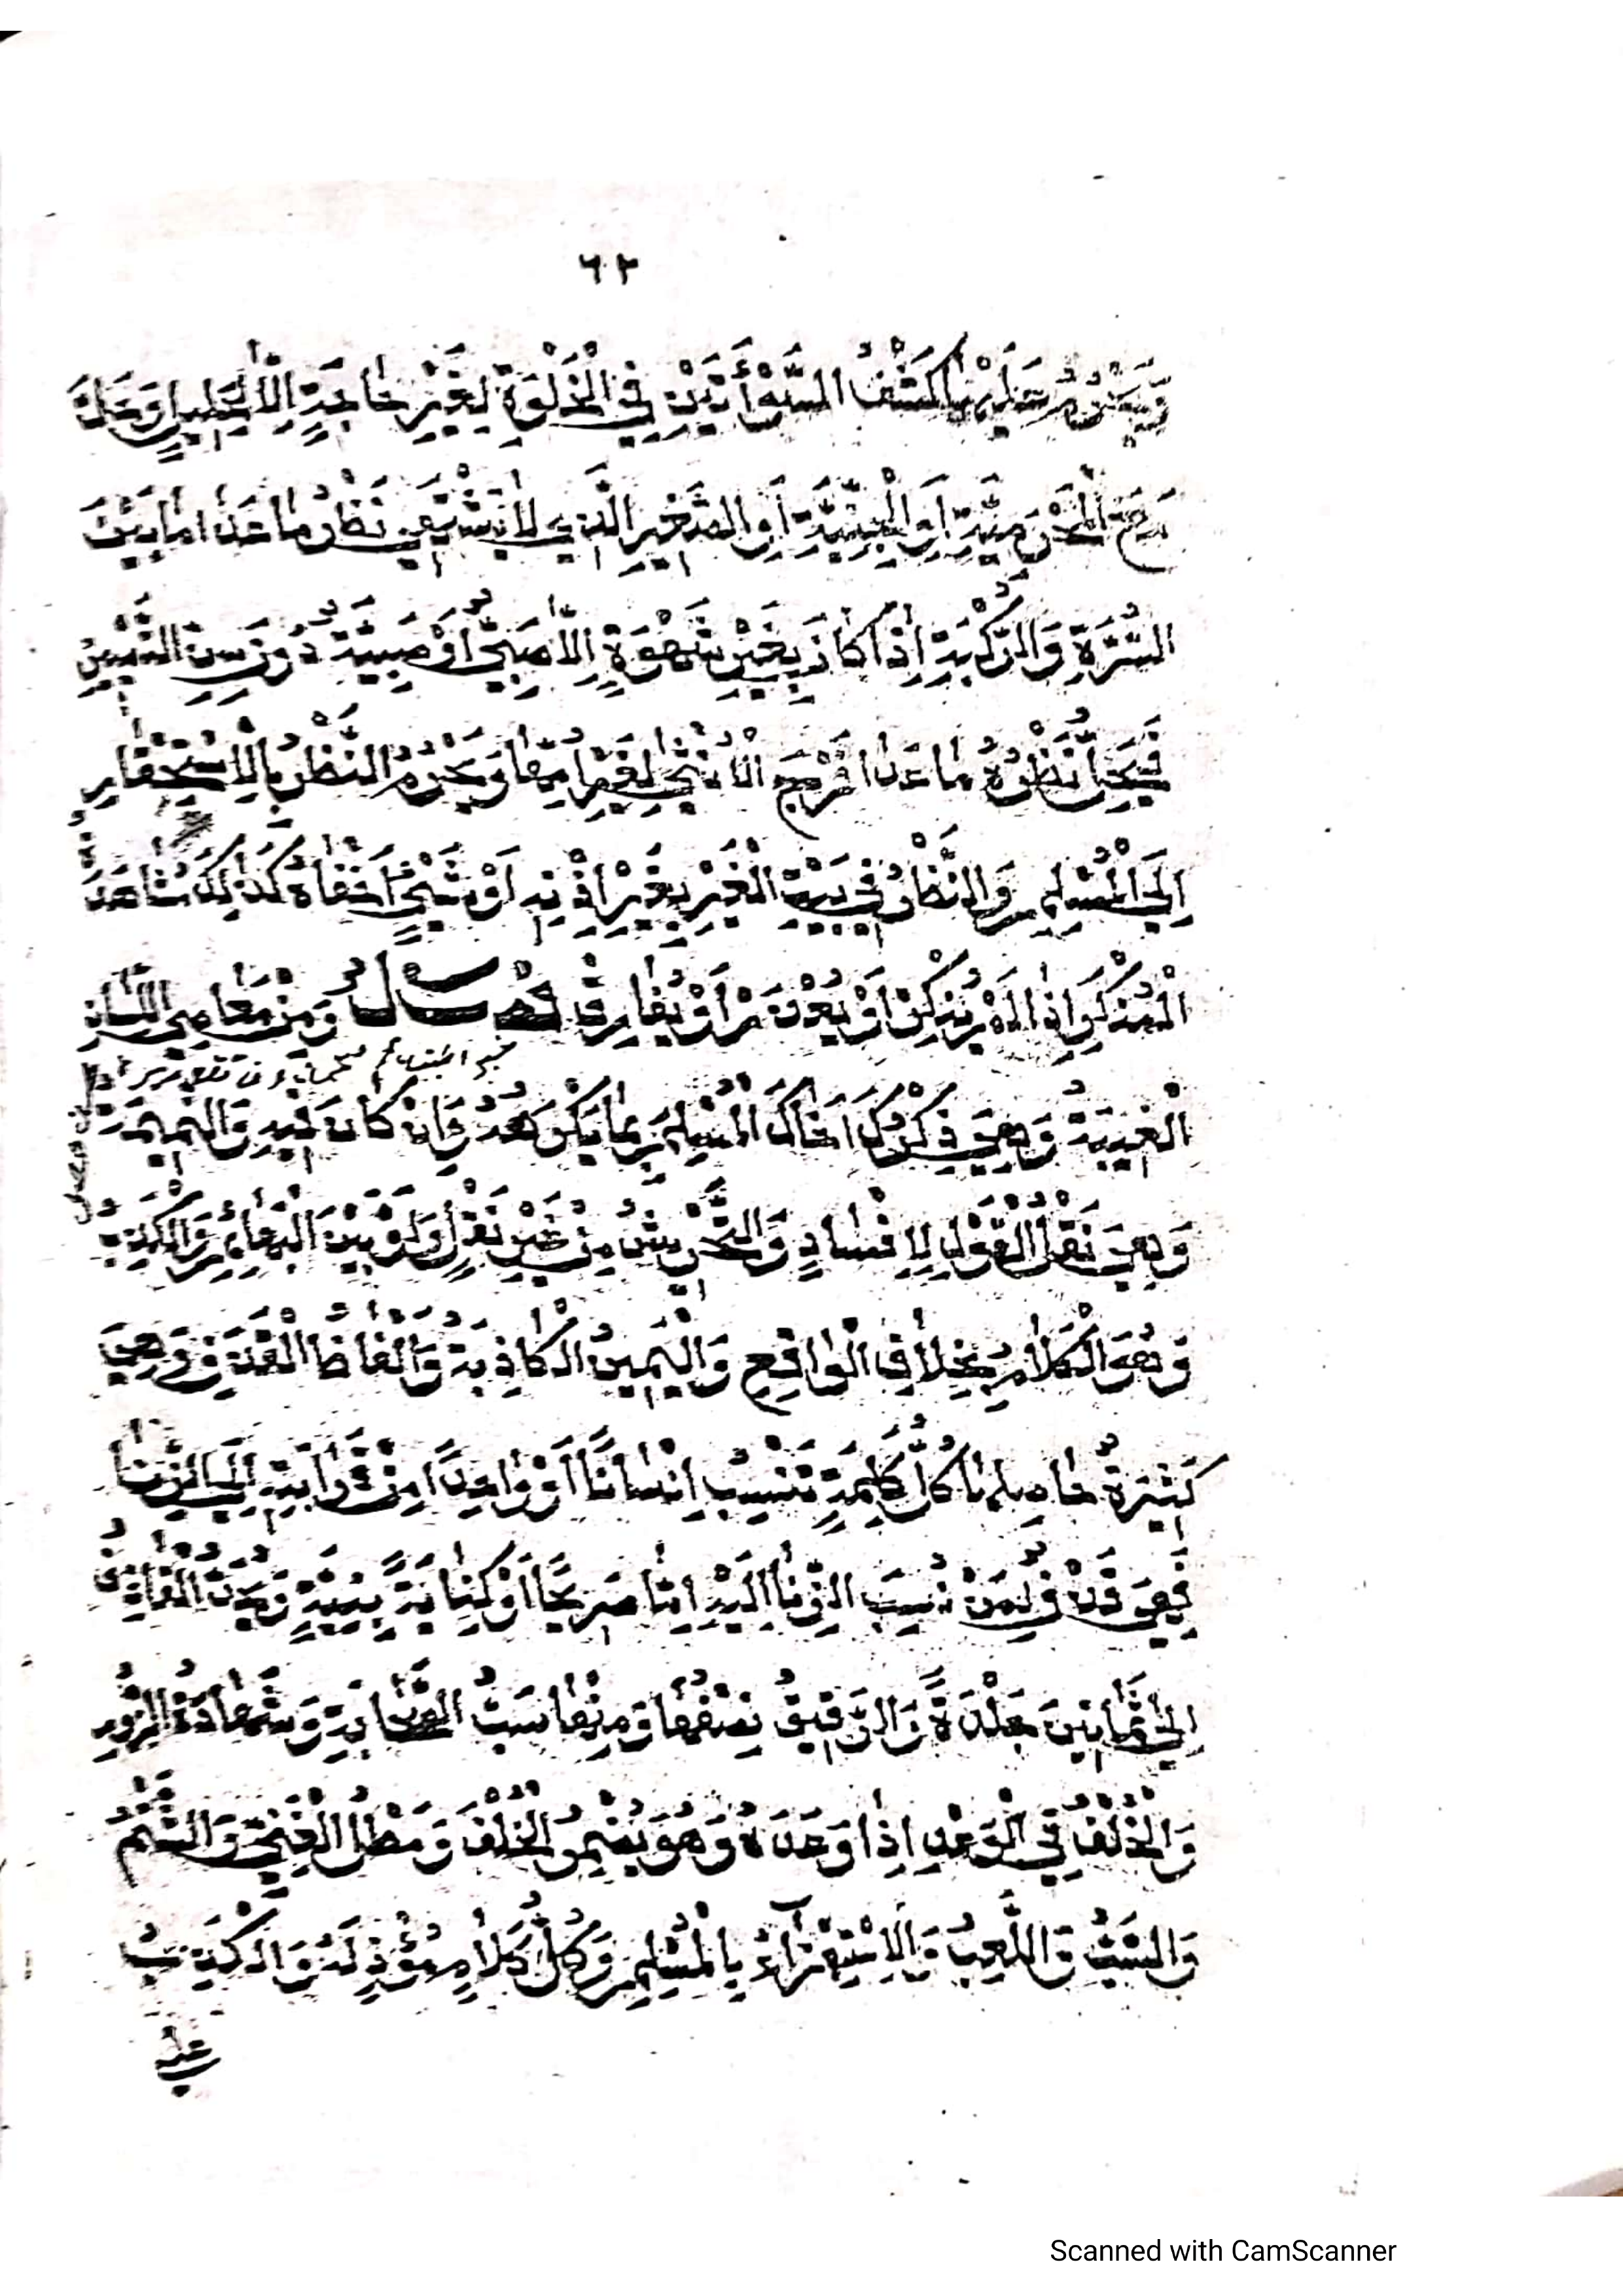 ٦٢
وَيَحْرُمُ عَلَيْهِمَا كَشْفُ السَّوْأَتَيْنِ فِي الْخَلْوَةِ لِغَيْرِ حَاجَةٍ إِلَّا لِحَلِيلٍ وَحَلَّ
مَعَ الْمَحْرَمِيَّةِ أَوِ الْجِنْسِيَّةِ أَوِ الصِّغَرِ الَّذِي لَا يُشْتَهَى نَظَرُ مَا عَدَا مَا بَيْنَ
السُّرَّةِ وَالرُّكْبَةِ إِذَا كَانَ بِغَيْرِ شَهْوَةٍ إِلَّا صَبِيٌّ أَوْ صَبِيَّةٌ دُونَ سِنِّ التَّمْيِيزِ
فَيَحِلُّ نَظَرُهُ مَا عَدَا فَرْجِ الْأُنْثَى لِغَيْرِ أُمِّهَا وَيَحْرُمُ النَّظَرُ بِالْاِسْتِحْقَارِ
إِلَى الْمُسْلِمِ وَالنَّظَرُ فِي بَيْتِ الْغَيْرِ بِغَيْرِ إِذْنِهِ أَوْ شَيْءٍ أَخْفَاهُ كَذَلِكَ وَمُشَاهَدَةُ
الْمُنْكَرِ إِذَا لَمْ يُنْكِرْ أَوْ يُعْذَرْ أَوْ يُفَارِقْ فَصْلٌ وَمِنْ مَعَاصِي اللِّسَانِ
الْغِيبَةُ وَهِيَ ذِكْرُكَ أَخَاكَ الْمُسْلِمَ بِمَا يَكْرَهُهُ وَإِنْ كَانَ فِيهِ وَالنَّمِيمَةُ
وَهِيَ نَقْلُ الْقَوْلِ لِلْإِفْسَادِ وَالتَّحْرِيشُ مِنْ غَيْرِ نَقْلٍ وَلَوْ بَيْنَ الْبَهَائِمِ وَالْكَذِبُ
وَهُوَ الْكَلَامُ بِخِلَافِ الْوَاقِعِ وَالْيَمِينُ الْكَاذِبَةُ وَأَلْفَاظُ الْقَذْفِ وَهِيَ
كَثِيرَةٌ حَاصِلُهَا كُلُّ كَلِمَةٍ تَنْسِبُ إِنْسَانًا أَوْ وَاحِدًا مِنْ قَرَابَتِهِ إِلَى الزِّنَا
فَهِيَ قَذْفٌ لِمَنْ نُسِبَ الزِّنَا إِلَيْهِ إِمَّا صَرِيحًا أَوْ كِنَايَةً بِنِيَّةٍ وَيُحَدُّ الْقَاذِفُ
الْحُرُّ ثَمَانِينَ جَلْدَةً وَالرَّقِيقُ نِصْفُهَا وَمِنْهَا سَبُّ الصَّحَابَةِ وَشَهَادَةُ الزُّورِ
وَالْخُلْفُ فِي الْوَعْدِ إِذَا وَعَدَهُ وَهُوَ يُضْمِرُ الْخُلْفَ وَمَطْلُ الْغَنِيِّ وَالشَّتْمُ
وَالسَّبُّ وَاللَّعْبُ وَالْاِسْتِهْزَاءُ بِالْمُسْلِمِ وَكُلُّ كَلَامٍ مُؤْذٍ لَهُ وَالْكَذِبُ
على
Scanned with CamScanner